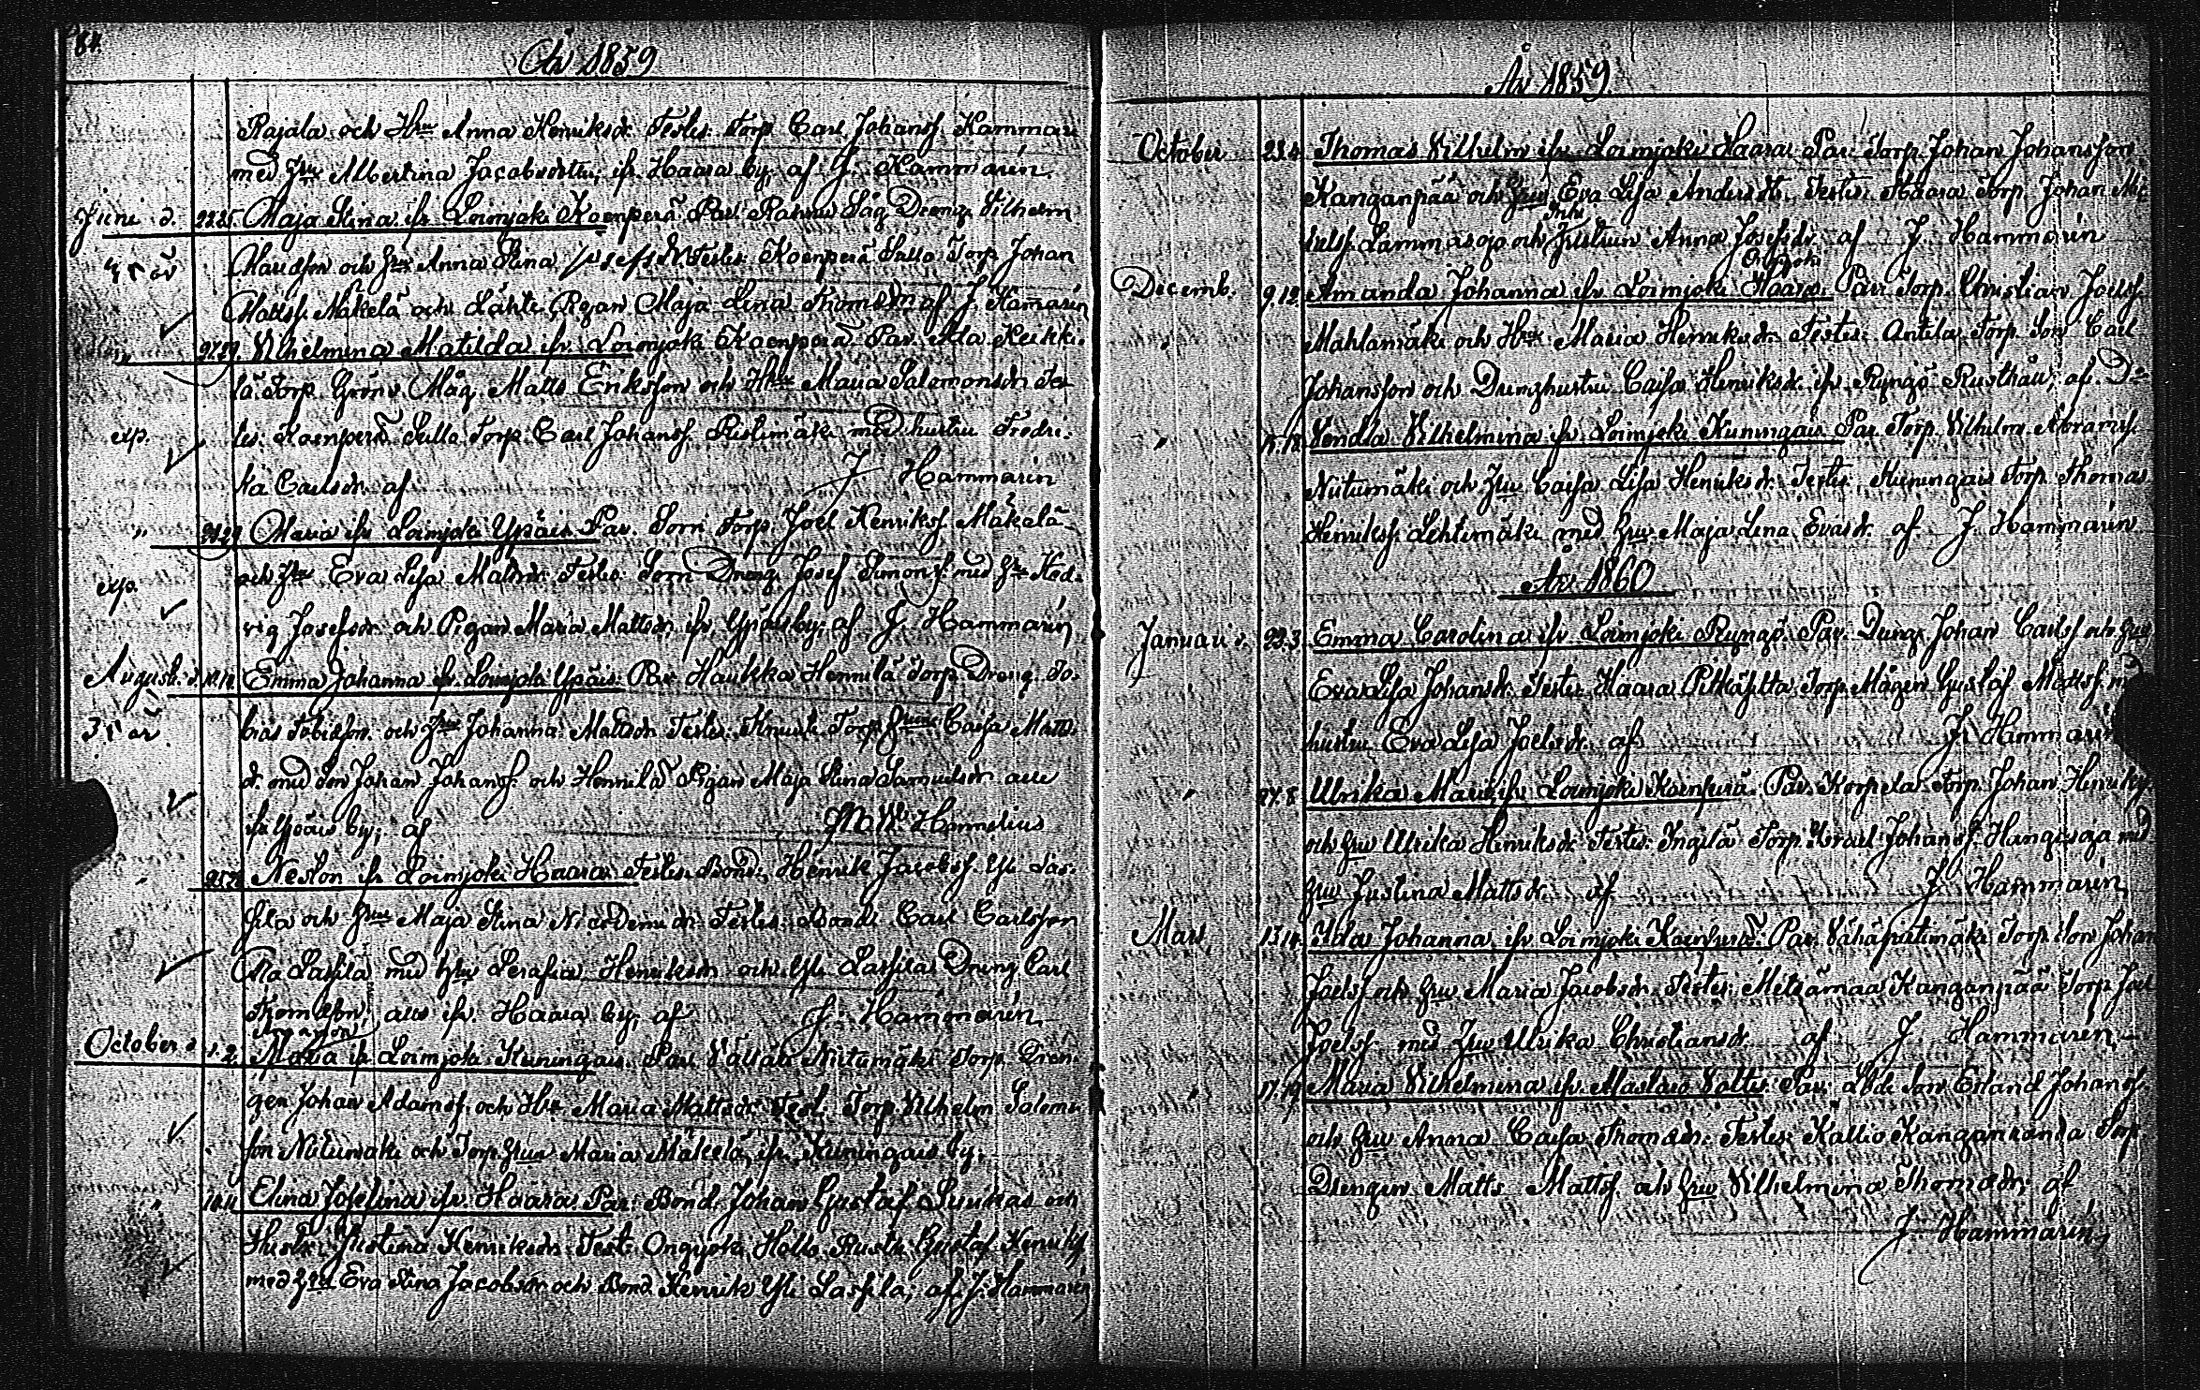 84.
År 1859
Rajala och Hru Anna Henriksdr. Testes: Torp. Carl Johansf. Kammari
med Hru Albertina Jacobsdotter, ifr. Haara by. af J. Hammarén.
Juni d. 22.25. Maja Stina ifr Loimjoki Koenperä Par.
och Hru Anna Stina Josefsdr Testes: Koenperä Sullo Torp. Johan
Mattsf. Mäkelä och Lähte Pigan Maja Lena Thomasdr. af J. Hammarén
27.29. Vilhelmina Matilda ifr. Loimjoki Koenperä Par. Ala Keikki-
lä Torp. Måg Matts Eriksson och Hru Maria Salomonsdr. Tes-
exp. tes: Koenperä Sullo Torp. Carl Johansf. Ristimäki med hustru Fredri-
ka Carlsdr. af J. Hammarén
" Maria ifr Loimjoki Ypäis Par. Torp. Joel Henriksf. Mäkelä
och Hru Eva Lisa Mattsdr. Testes: Dreng. Josef Simonsf. med Hru Hed-
exp. vig Josefsdr. och Pigan Maria Mattsdr. ifr. Ypäis by; af J. Hammarén
August. d. Emma Johanna ifr. Loimjoki Ypäis. Par. Haukka Hennilä Torp. Dreng. To-
bias Tobiasson och Hru Johanna Mattsdr. Testes: Torp. Hrun Caisa Matts-
dr. med son Johan Johansf. och Hennilä Pigan Maja Stina Samuelsdr. alle
ifr Ypäis by; af
" Nestor ifr Loimjoki Haara Testes: Bond. Henrik Jacobsf. Yli Las-
sila och Hru Maja Stina Nicodemidr. Testes: Bond. Carl Carlsson
Ala Lassila med Hru Serafia Henriksdr. och Yli Lassila Dreng Carl
Thomasson, alle ifr. Haara by, af J. Hammarén
October d. 1.2. Maria ifr Loimjoki Kuningais. Par. Niitumäki Torp. Dren-
gen Johan Adamsf. och Hru Maria Mattsdr. Test. Torp. Vilhelm Salomo-
son Niitumäki och Torp. Hrun Maria Mäkelä, ifr. Kuningais by.
" 10.11. Elina Josefina ifr. Haara Par: Bond. Johan Gustaf Sunikas och
Hustr. Justina Henriksdr. Test: Ongjoki Hollo Rusth. Gustaf Henriksf.
med Hru Eva Stina Jacobsdr. och Bond Henrik Yli Lassila; af J. Hammarén
År 1859
October 23.4. Thomas Vilhelm ifr. Loimjoki Haara Par. Torp. Johan Johansson
Kanganpää och Hru Eva Lisa Andersdr. Testes: Haara Torp. Johan Mic-
kelsf. Lammasoja och Hustrun Anna Josefsdr. af J. Hammarén
Decemb. 9.12. Amanda Johanna ifr. Loimjoki Haara. Par. Torp. Christian Joelsf.
Mahlamäki och Hru Maria Henriksdr. Testes: Anttila Torp. Son Carl
Johansson och Drenghustru Caisa Henriksdr. ifr. Ryngö Rusthåll; af D:o
" Vendla Vilhelmina ifr. Loimjoki Kuningais Par. Torp. Vilhelm Abramsf.
Niitumäki och Hru Caisa Lisa Henriksdr. Testes: Kuningais Torp. Thomas
Henriksf. Lehtimäki med Hru Maja Lena Evasdr. af J. Hammarén
År 1860
Januari d. 22.3. Emma Carolina ifr. Loimjoki Ryngö. Par. Dreng. Johan Carlsf. och Hru
Eva Lisa Johansdr. Testes: Haara Torp. Mågen Gustaf Mattsf. med
hustru Eva Lisa Joelsdr. af J. Hammarén
" 27.8. Ulrika Maria ifr. Loimjoki Koenperä Par. Korpela Torp. Johan Henriksf.
och Hru Ulrika Henriksdr. Testes: Ingilä Torp. Israel Johansf. Hangisoja med
Hru Justina Mattsdr. af J. Hammarén
Mars. 13.14. Ida Johanna ifr. Loimjoki Koenperä. Par. Torp. Son Johan
Joelsf. och Hru Maria Jacobsdr. Testes: Metsämaa Kanganpää Torp. Joel
Joelsf. med Hru Ulrika Christiansdr. af J. Hammarén
" 17.19. Maria Vilhelmina ifr. Par. Son Erland Johansf.
och Hru Anna Caisa Thomasdr. Testes: Kallio Kanganranda Torp.
Drengen Matts Mattsf. och Hru Vilhelmina Thomasdr. af
J. Hammarén